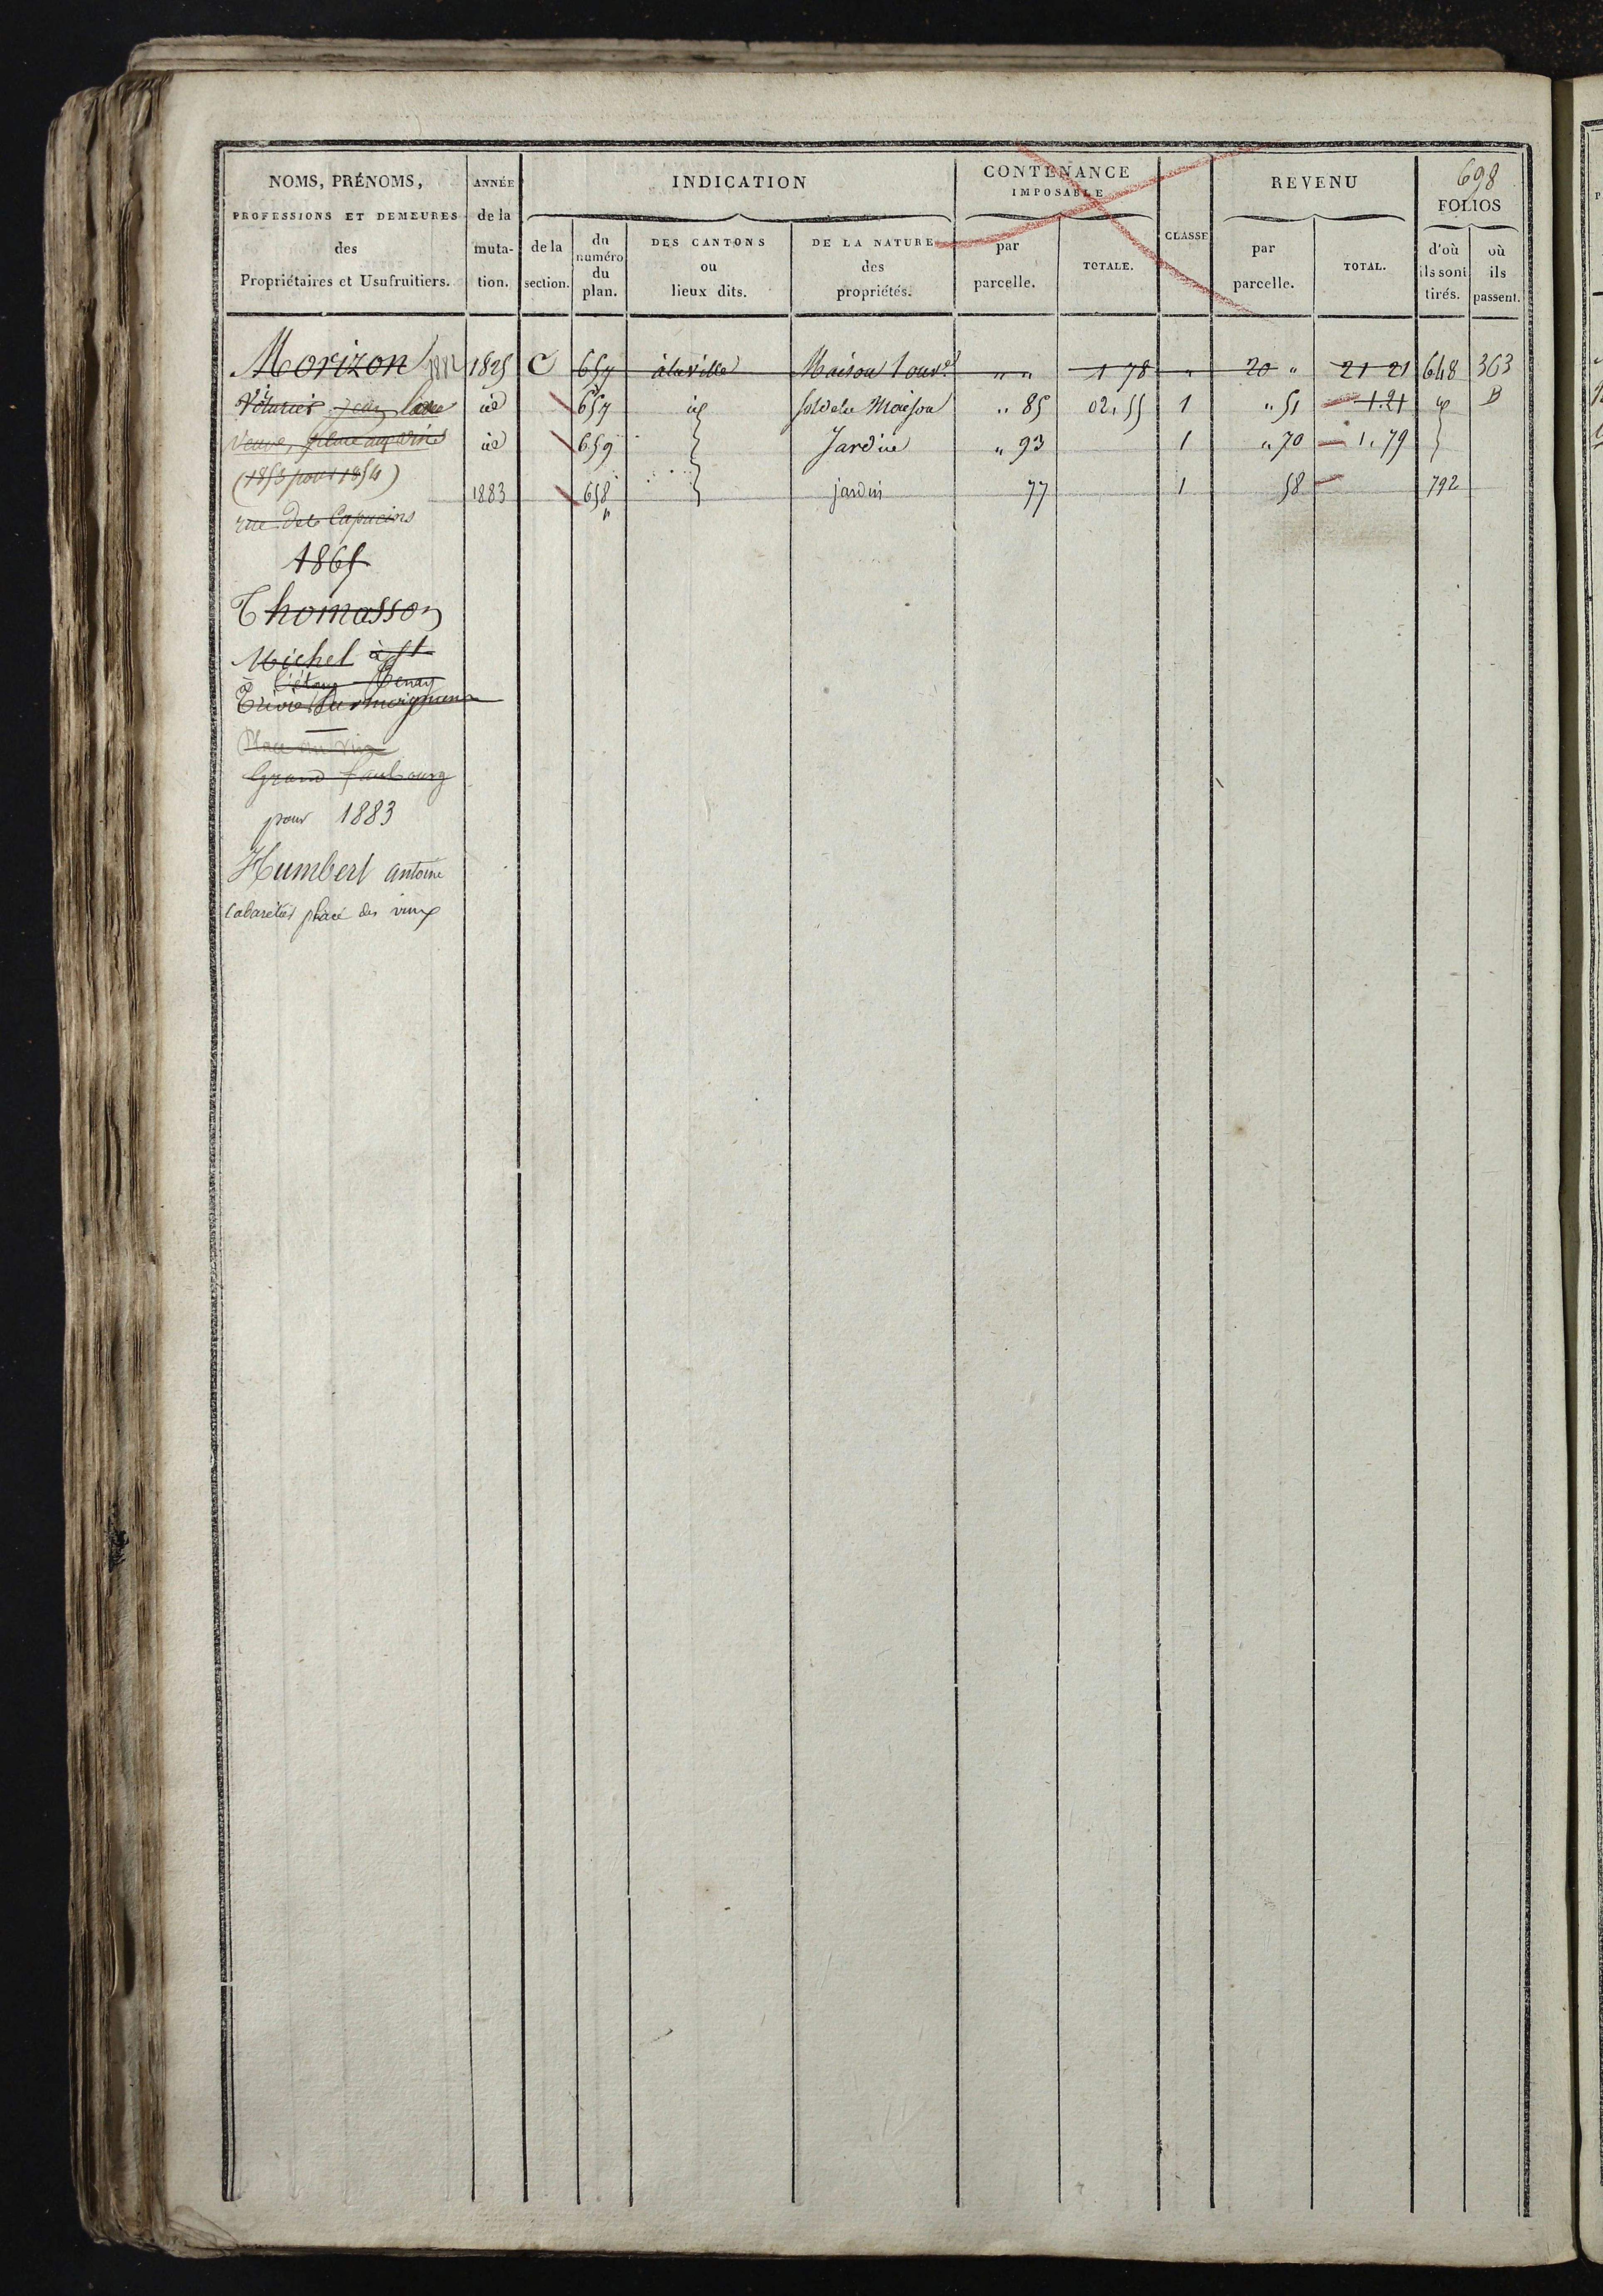 698
NOMS, PRÉNOMS, ANNÉE INDICATION CONTENANCE IMPOSABLE CLASSE REVENU FOLIOS
PROFESSIONS ET DEMEURES de la
des muta- de la du numéro DES CANTONS DE LA NATURE par TOTALE. par TOTAL. d'où où
Propriétaires et Usufruitiers. tion. section. du plan. ou lieux dits. des propriétés. parcelle. parcelle. ils sont tirés. ils passent.
Morizon 1882 1825 C 657 à la ville Maison 1 ouv. " " 1 78 " 20 " 21 21 648 363
Voiturier Jean id 657 id sol de la Maison " 85 02,55 1 " 51 1.21 id B
Veuve, place aux vins id 659 Jardin " 93 1 " 70 1.79
(1853 pour 1854)
1883 658 jardin 77 1 58 792
rue des Capucins
1865
Thomasson
Michel à St
Place aux Vins
Grand faubourg
pour 1883
Humbert antoine
Cabaretier place des vins